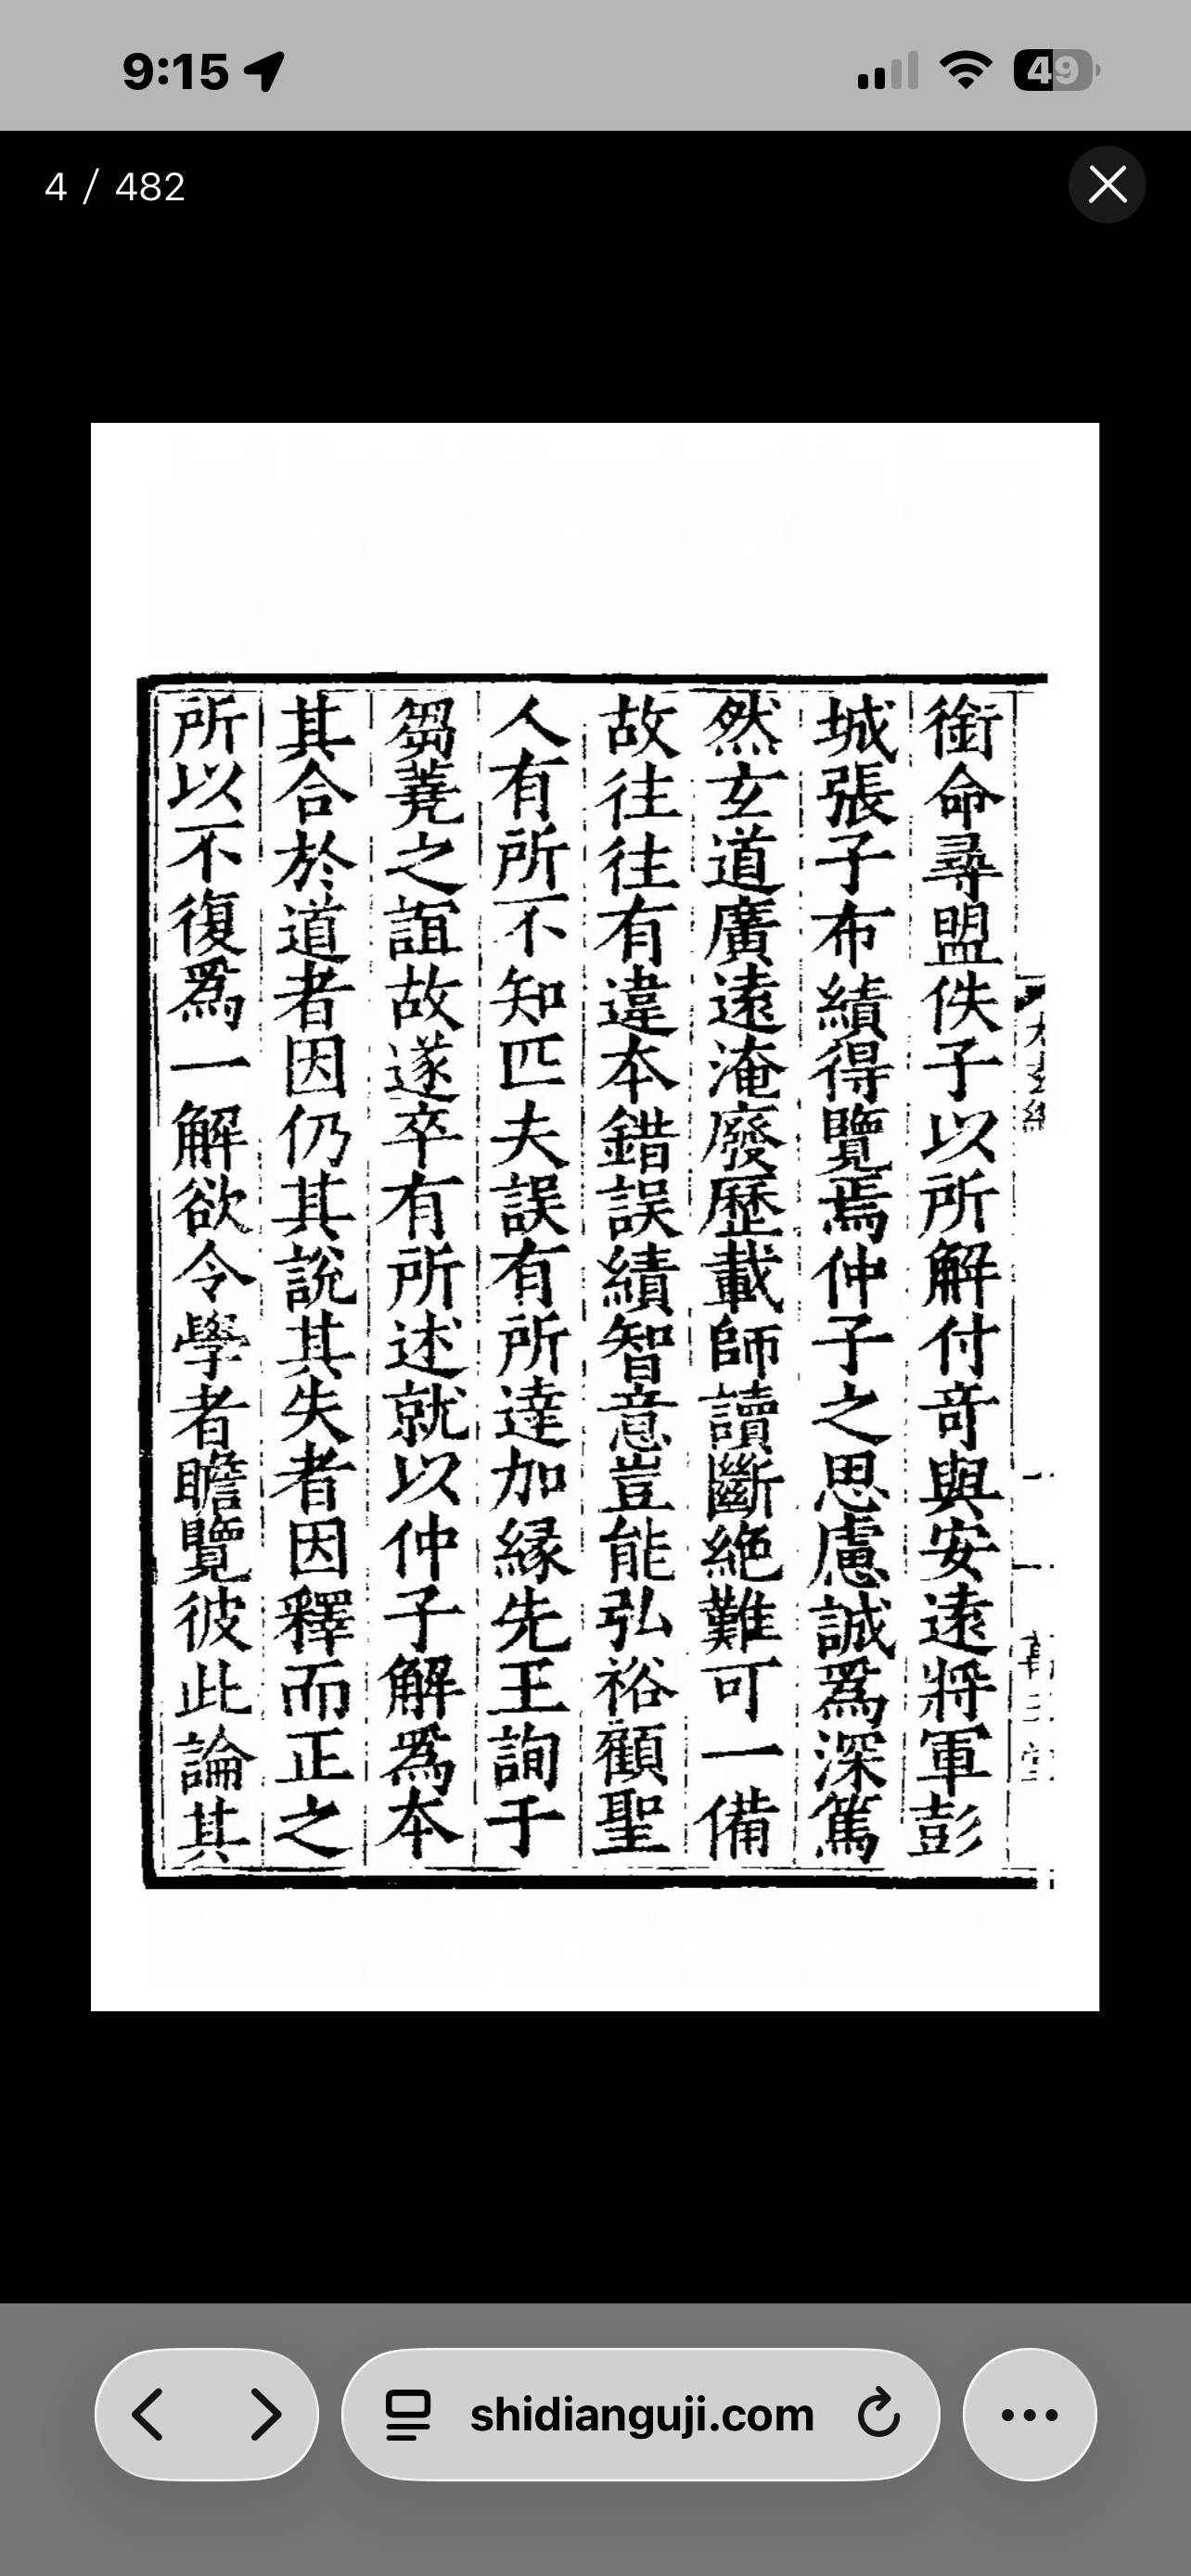 9:15
49
4 / 482
銜命尋盟佚子以所解付竒與安遠將軍彭
城張子布績得覽焉仲子之思慮誠爲深篤
然玄道廣遠淹廢歷載師讀斷絶難可一備
故徃徃有違本錯誤績智意豈能弘裕顧聖
人有所不知匹夫誤有所達加緣先王詢于
芻蕘之誼故遂卒有所述就以仲子解爲本
其合於道者因仍其說其失者因釋而正之
所以不復爲一解欲令學者瞻覽彼此論其
shidianguji.com